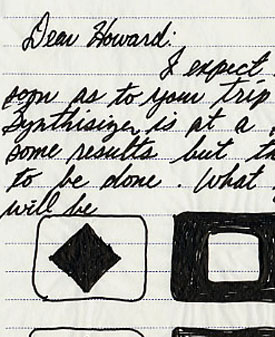 Dear Howard:
I expect
soon as to your trip
Synthisizer is at a
some results but
to be done. What
will be